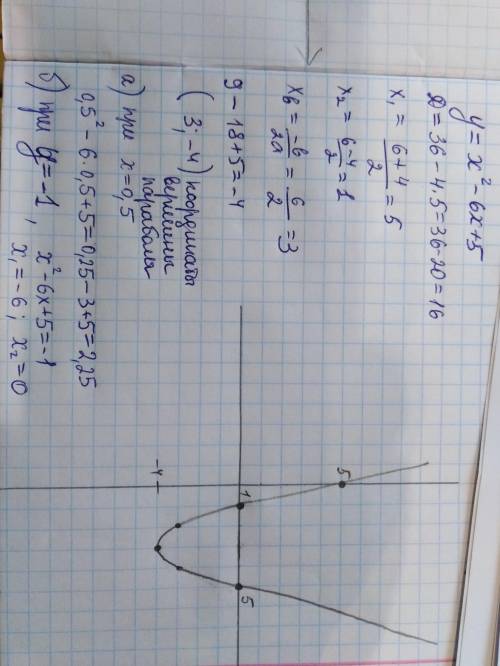 y = x² - 6x + 5
D = 36 - 4·5 = 36 - 20 = 16
x₁ = (6 + 4)/2 = 5
x₂ = (6 - 4)/2 = 1
xв = -b/2a = 6/2 = 3
9 - 18 + 5 = -4
(3; -4) координаты
вершины
параболы
а) при x = 0,5
0,5² - 6·0,5 + 5 = 0,25 - 3 + 5 = 2,25
б) при y = -1, x² - 6x + 5 = -1
x₁ = -6; x₂ = 0
5
1
5
-4